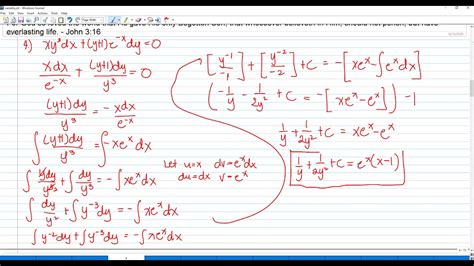 everlasting life. - John 3:16
xy³dx + (y+1)e^-x dy = 0
xdx/e^-x + (y+1)dy/y³ = 0
(y+1)dy/y³ = - xdx/e^-x
∫ (y+1)dy/y³ = ∫ -xe^x dx
∫ ydy/y³ + ∫ dy/y³ = -∫ xe^x dx
∫ dy/y² + ∫ y^-3 dy = -∫ xe^x dx
∫ y^-2 dy + ∫ y^-3 dy = -∫ xe^x dx
Let u=x dv=e^x dx
du=dx v=e^x
[y^-1/-1] + [y^-2/-2] + C = -[xe^x - ∫e^x dx]
(-1/y - 1/2y² + C = -[xe^x - e^x]) -1
1/y + 1/2y² + C = xe^x - e^x
1/y + 1/2y² + C = e^x(x-1)